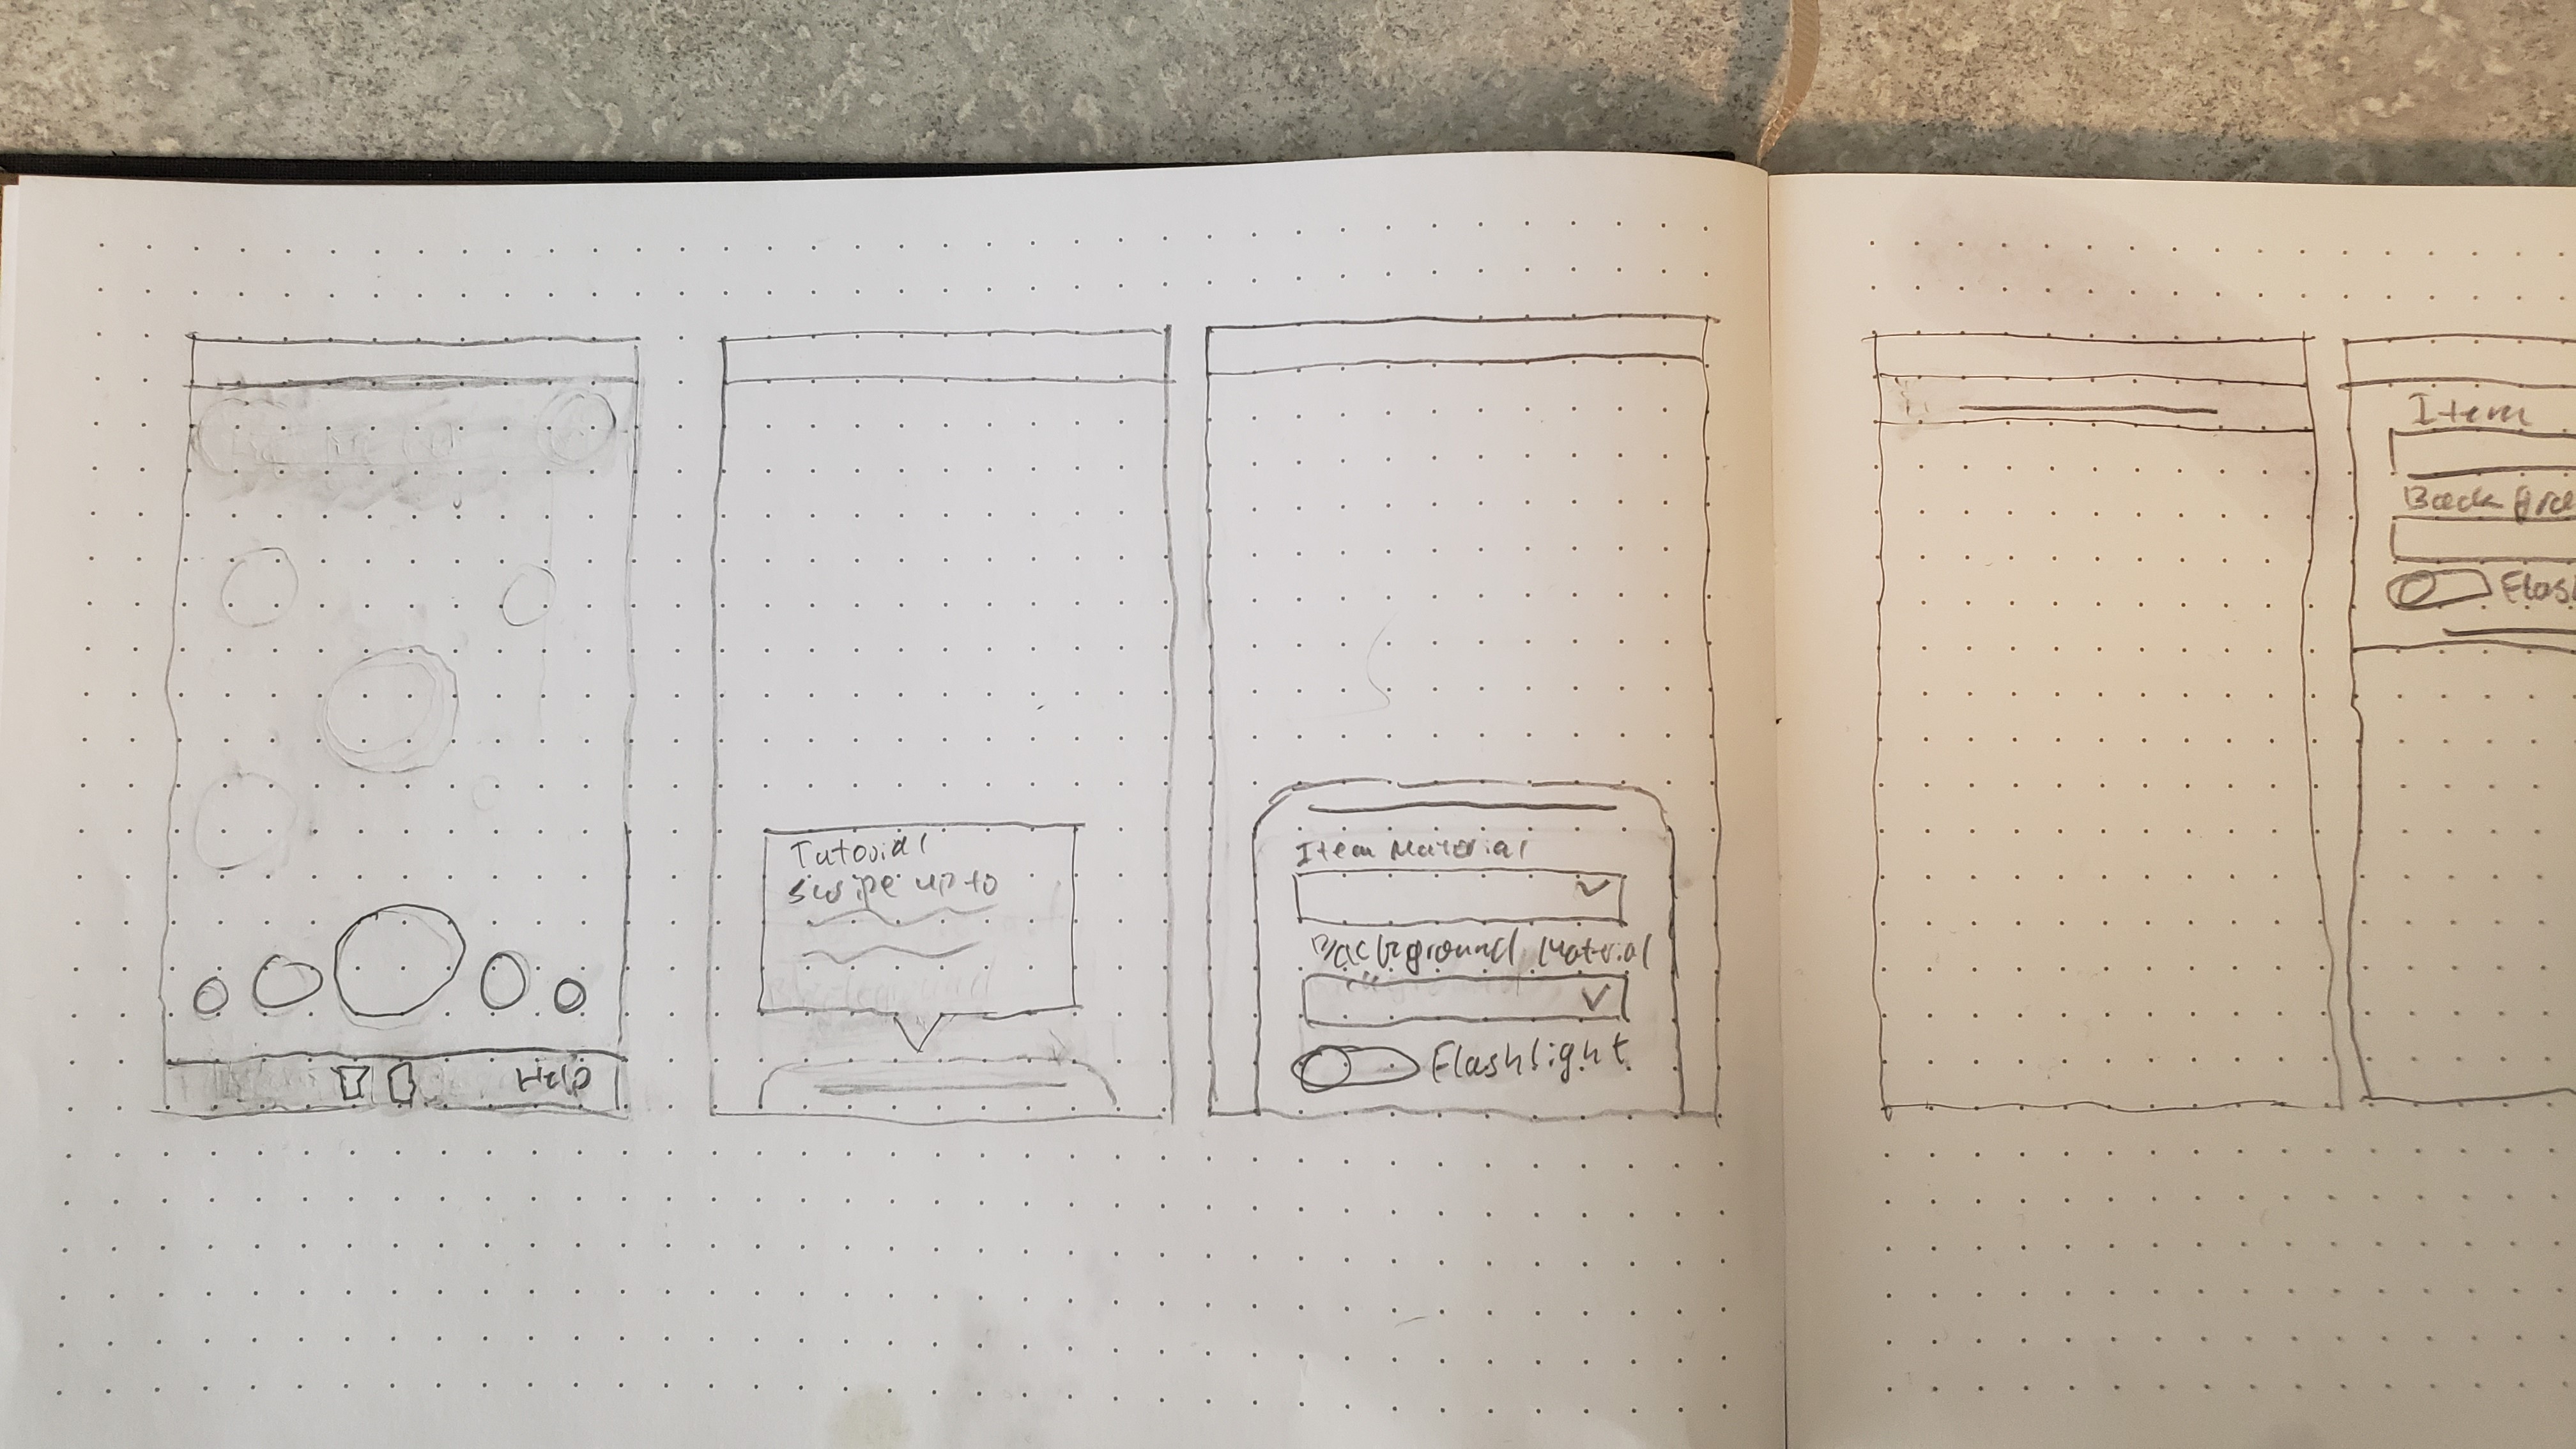 Help
Tutorial
swipe up to
Item Material
Background Material
Flashlight
Item